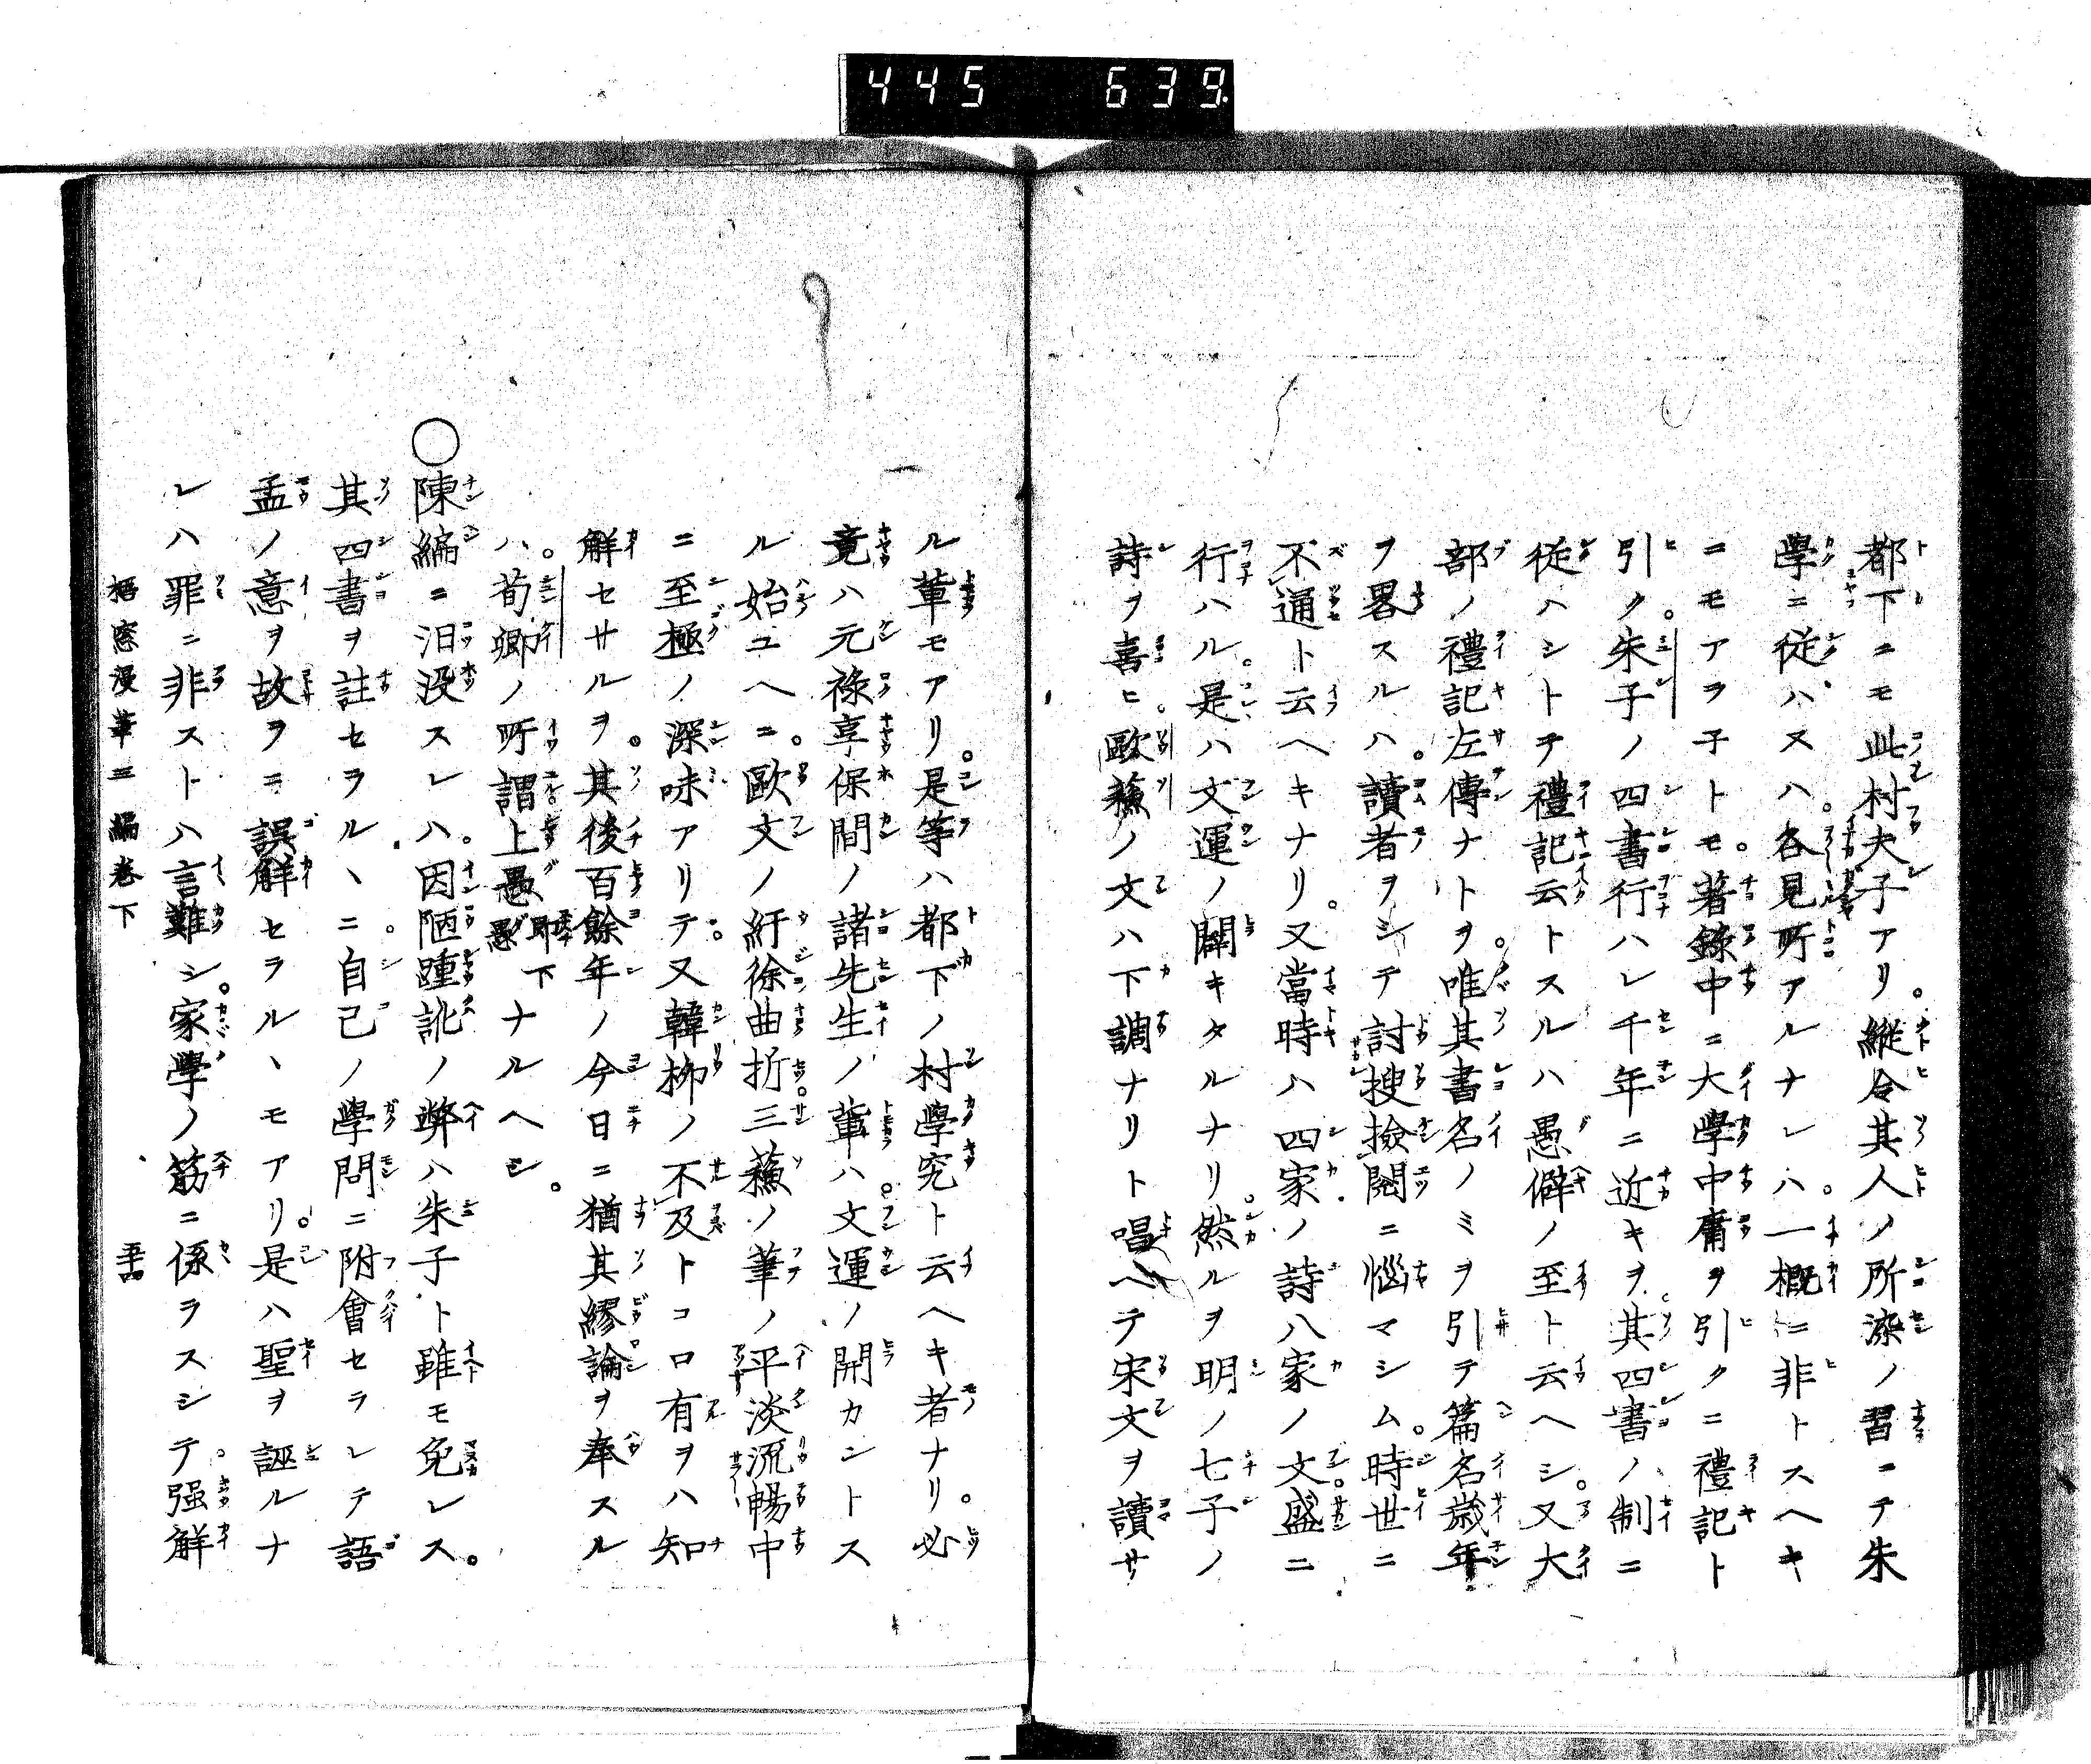 445 639.
都下ニモ此村夫子アリ。縱令其人ノ所漆ノ習ニテ朱
學ニ從ハスハ。各見所アルナレハ。一概ニ非トスヘキ
ニモアヲ子トモ。著錄中ニ大學中庸ヲ引クニ禮記ト
引ク。朱子ノ四書行ハレ千年ニ近キヲ。其四書ノ制ニ
從ハシトテ禮記云トスルハ愚僻ノ至ト云ヘシ。又大
部ノ禮記左傳ナトヲ。唯其書名ノミヲ引テ篇名歳年
ヲ畧スルハ。讀者ヲシテ討搜撿閲ニ惱マシム。時世ニ
不通ト云ヘキナリ。又當時ハ四家ノ詩八家ノ文。盛ニ
行ハル。是ハ文運ノ闢キタルナリ。然ルヲ明ノ七子ノ
詩ヲ喜ヒ。歐蘓ノ文ハ下調ナリト唱ヘテ宋文ヲ讀サ
ル軰モアリ。是等ハ都下ノ村學究ト云ヘキ者ナリ。必
竟ハ元祿享保間ノ諸先生ノ軰ハ。文運ノ開カントス
ル始ユヘニ。歐文ノ紆徐曲折。三蘓ノ筆ノ平淡流暢中
ニ至極ノ深味アリテ。又韓柳ノ不及トコロ有ヲハ知
解セサルヲ。其後百餘年ノ今日ニ猶其繆論ヲ奉スル
ハ。荀卿ノ所謂上愚 即下愚 ナルヘシ。
○陳編ニ汨没スレハ。因陋踵訛ノ弊ハ朱子ト雖モ免レス。
其四書ヲ註セラルヽニ。自己ノ學問ニ附會セラレテ語
孟ノ意ヲ故ヲニ誤解セラルヽモアリ。是ハ聖ヲ誣ルナ
レハ罪ニ非ストハ言難シ。家學ノ筋ニ係ラスシテ。强解
梧窓漫筆三編卷下 五十四